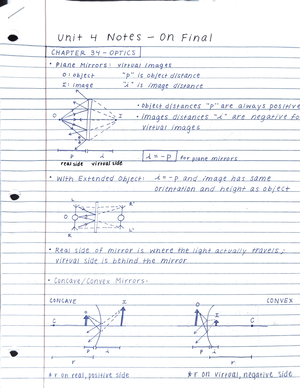 Unit 4 Notes - On Final
CHAPTER 34 - OPTICS
• Plane Mirrors: virtual images
O: object "p" is object distance
I: image "i" is image distance
• object distances "p" are always positive
• images distances "i" are negative for
virtual images
O I
p i
real side virtual side
i = -p for plane mirrors
• With Extended Object: i = -p and image has same
orientation and height as object
L R'
O
R L'
• Real side of mirror is where the light actually travels;
virtual side is behind the mirror
• Concave/Convex Mirrors:
CONCAVE CONVEX
I
C
O
I
C
p i
p i
r
r
* r on real, positive side
* r on virtual, negative side